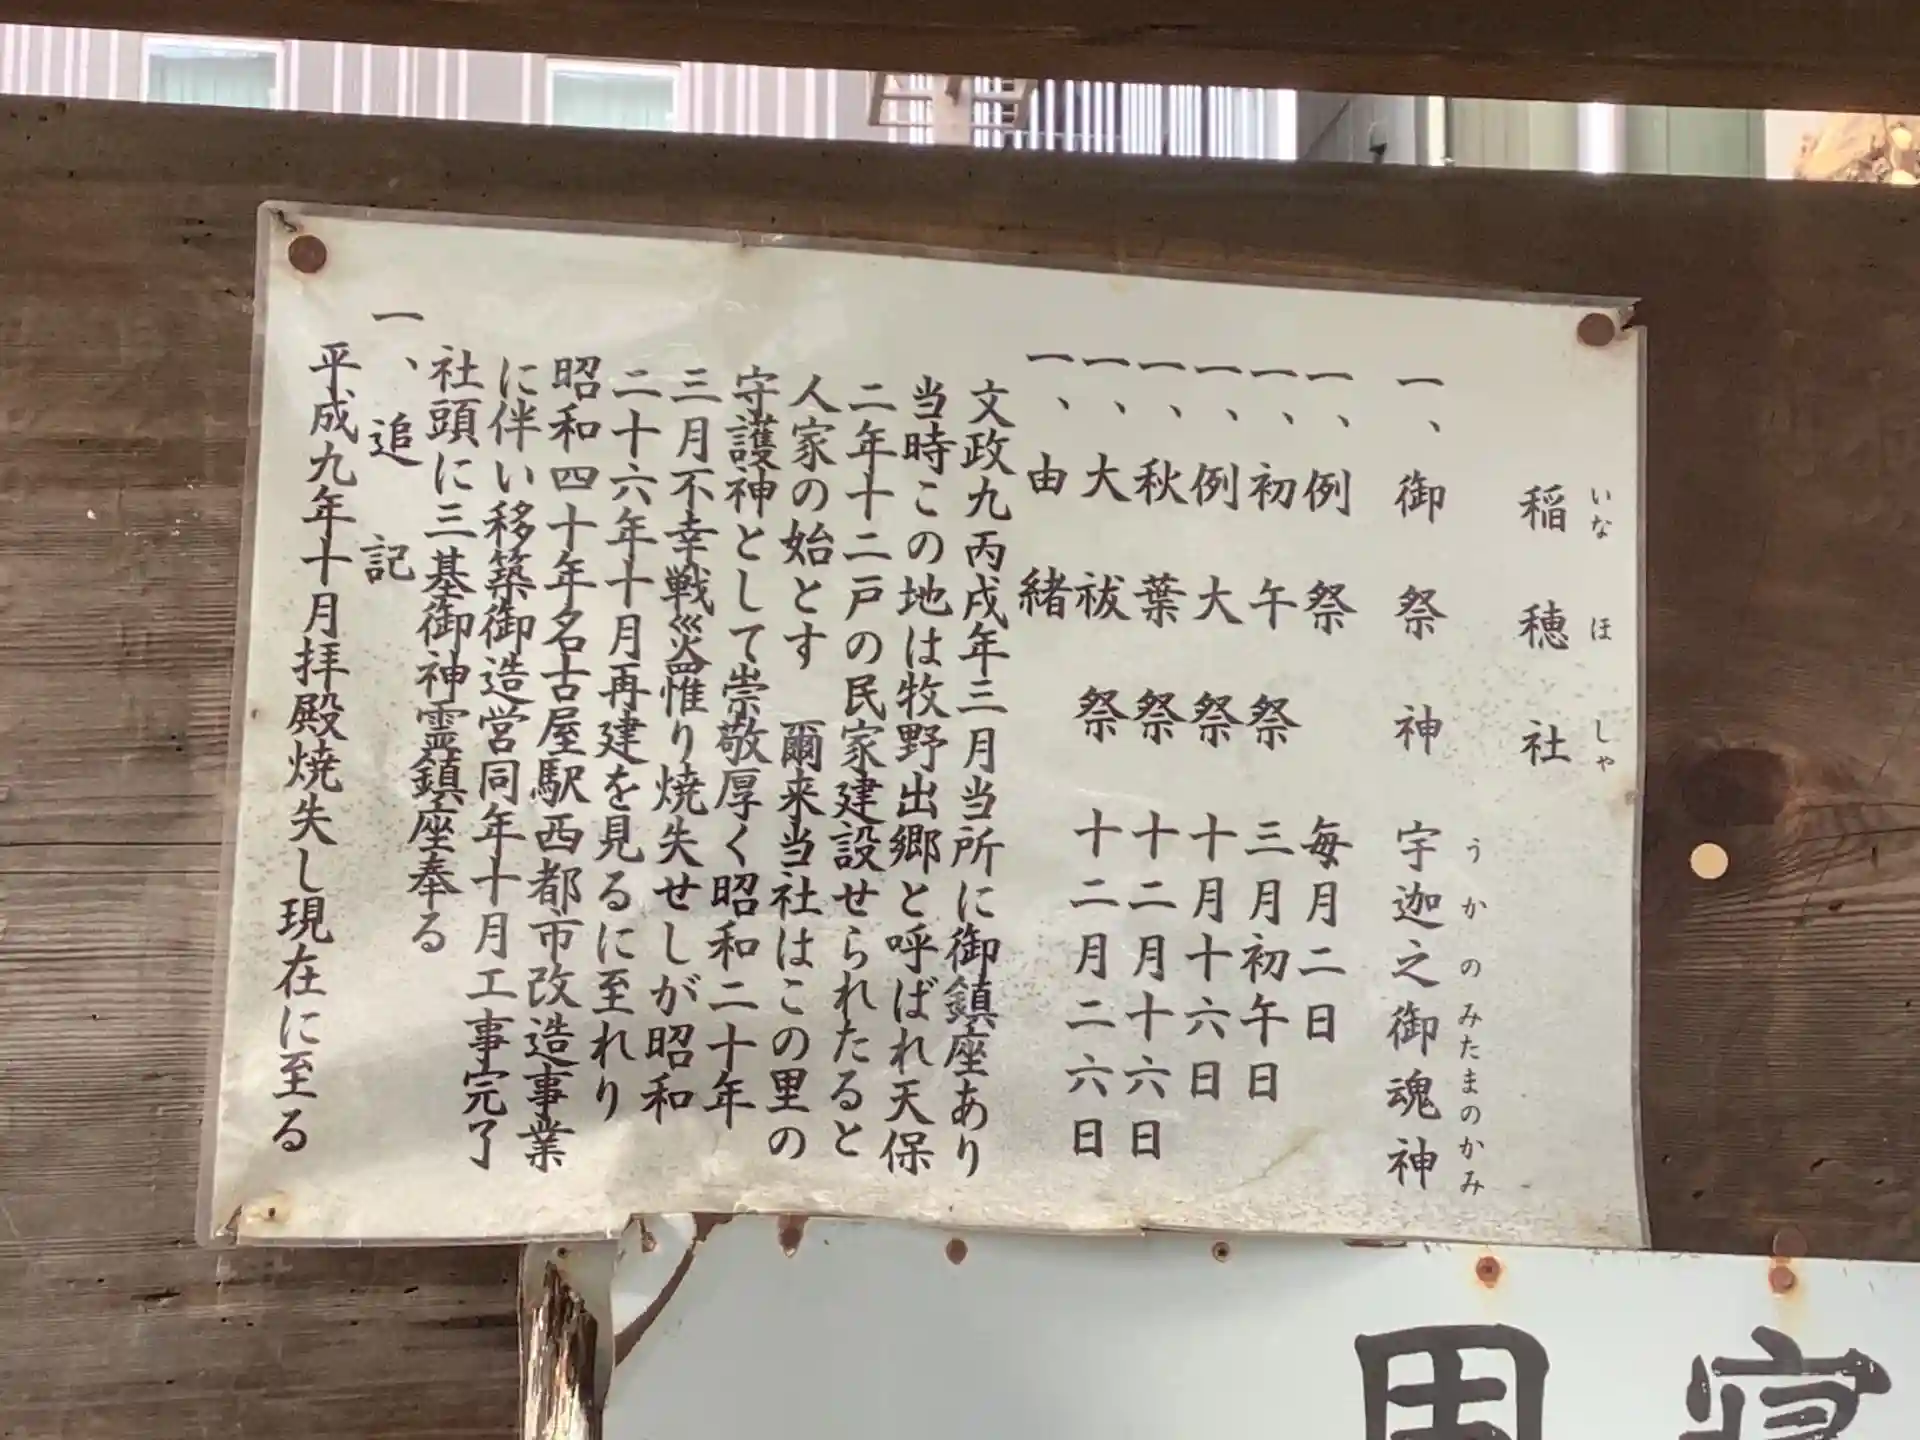 稲穂社
いなほしゃ
一、御祭神 宇迦之御魂神
うかのみたまのかみ
一、例祭 毎月二日
一、初午祭 三月初午日
一、例大祭 十月十六日
一、秋葉祭 十二月十六日
一、大祓祭 十二月二六日
一、由緒
文政九丙戌年三月当所に御鎮座あり
当時この地は牧野出郷と呼ばれ天保
二年十二戸の民家建設せられたると
人家の始とす 爾来当社はこの里の
守護神として崇敬厚く昭和二十年
三月不幸戦災惟り焼失せしが昭和
二十六年十月再建を見るに至れり
昭和四十年名古屋駅西都市改造事業
に伴い移築御造営同年十月工事完了
社頭に三基御神霊鎮座奉る
一、追記
平成九年十月拝殿焼失し現在に至る